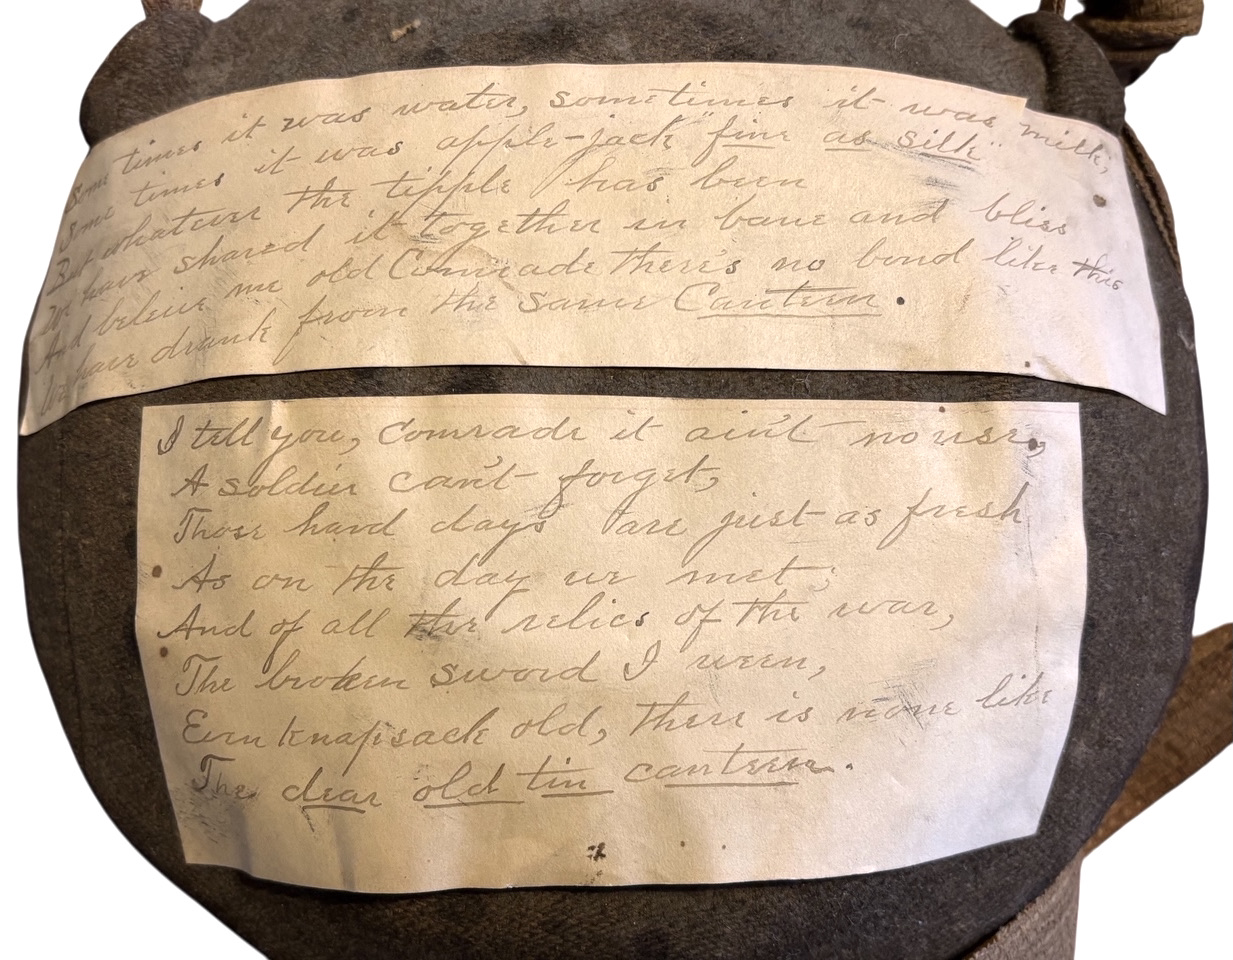 Some times it was water, sometimes it was milk,
Some times it was apple-jack "fine as silk"
But whatever the tipple has been
We have shared it together in bane and bliss
And beleive me old Comrade there's no bond like this
We have drank from the same Canteen.
I tell you, Comrade it ain't no use,
A soldier can't forget,
Those hard days are just as fresh
As on the day we met;
And of all the relics of the war,
The broken sword I ween,
Even knapsack old, there is none like
The dear old tin canteen.